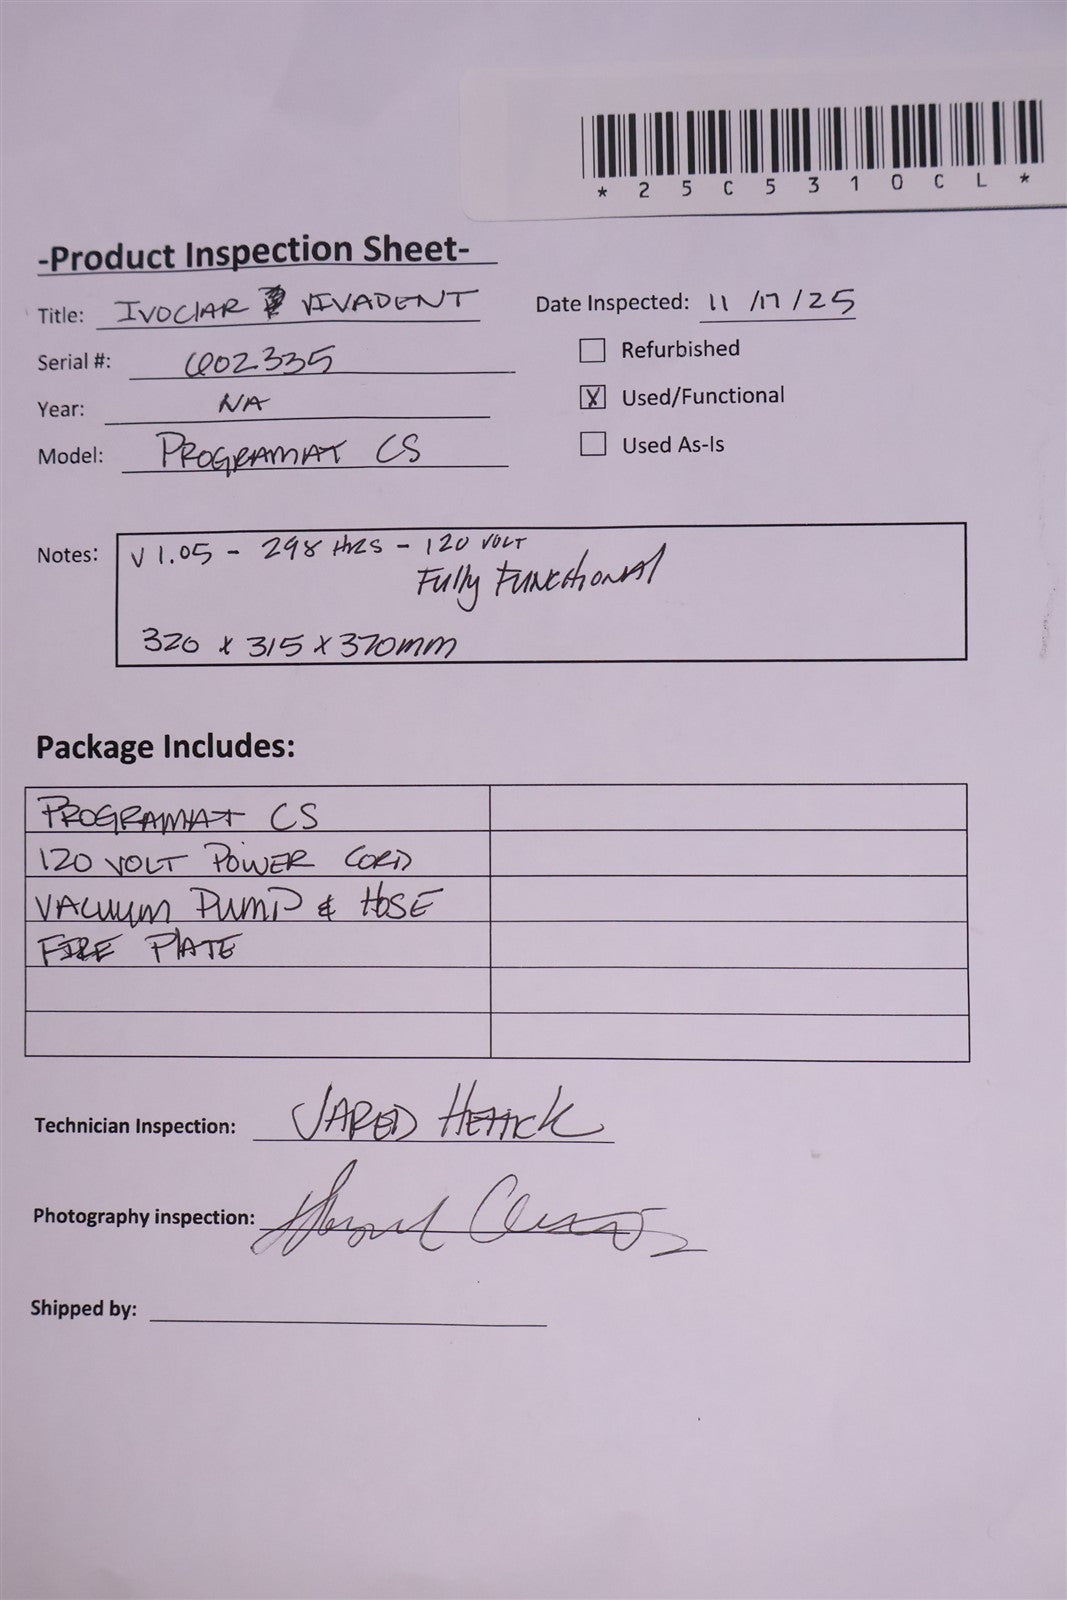 *25C5310CL*
-Product Inspection Sheet-
Title: IVOCLAR VIVADENT
Date Inspected: 11/17/25
Serial #: 602335
Refurbished
Year: NA
X Used/Functional
Model: PROGRAMAT CS
Used As-Is
Notes: V 1.05 - 298 HRS - 120 VOLT
Fully Functional
320 x 315 x 370mm
Package Includes:
PROGRAMAT CS
120 VOLT POWER CORD
VACUUM PUMP & HOSE
FIRE PLATE
Technician Inspection: JARED
Photography inspection:
Shipped by: